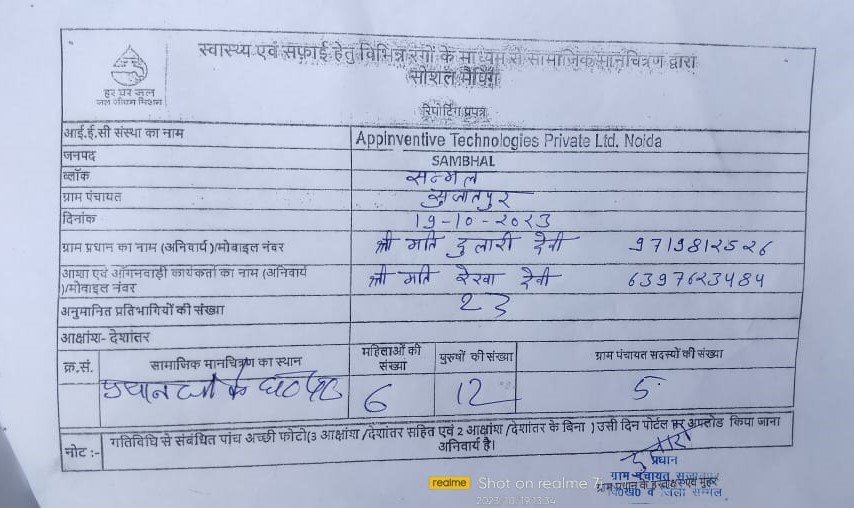 स्वास्थ्य एवं सफ़ाई हेतु विभिन्न रंगों के माध्यम से सामाजिक मानचित्रण द्वारा
सोशल मैपिंग
हर घर जल
जल जीवन मिशन
रिपोर्टिंग प्रपत्र
आई.ई.सी संस्था का नाम Appinventive Technologies Private Ltd. Noida
जनपद SAMBHAL
ब्लॉक सम्भल
ग्राम पंचायत सुजातपुर
दिनांक 19-10-2023
ग्राम प्रधान का नाम (अनिवार्य )/मोबाइल नंबर श्री मति दुलारी देवी 9719812526
आशा एवं आँगनवाड़ी कार्यकर्ता का नाम (अनिवार्य श्री मति रेखा देवी 6397623484
)/मोबाइल नंबर
अनुमानित प्रतिभागियों की संख्या 23
आक्षांश- देशांतर
क्र.सं. सामाजिक मानचित्रण का स्थान महिलाओं की संख्या पुरुषों की संख्या ग्राम पंचायत सदस्यों की संख्या
प्रधान जी के घर पर 6 12 5
नोट :- गतिविधि से संबंधित पांच अच्छी फोटो(3 आक्षांश /देशांतर सहित एवं 2 आक्षांश /देशांतर के बिना ) उसी दिन पोर्टल पर अपलोड किया जाना
अनिवार्य है।
दुलारी
प्रधान
ग्राम-पंचायत
ग्राम प्रधान के हस्ताक्षर एवं मुहर
वि0ख0 व जिला सम्भल
realme Shot on realme 7i
2023/10/19 13:34